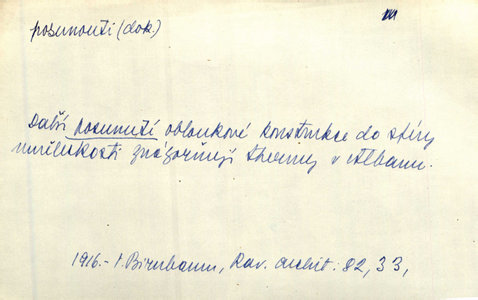 posunouti (dok.)
Další posunutí obloukové konstrukce do sféry
umělickosti znázorňují thermy v Albanu.
1916 - V. Birnbaum, Rav. archit. 82, 33,